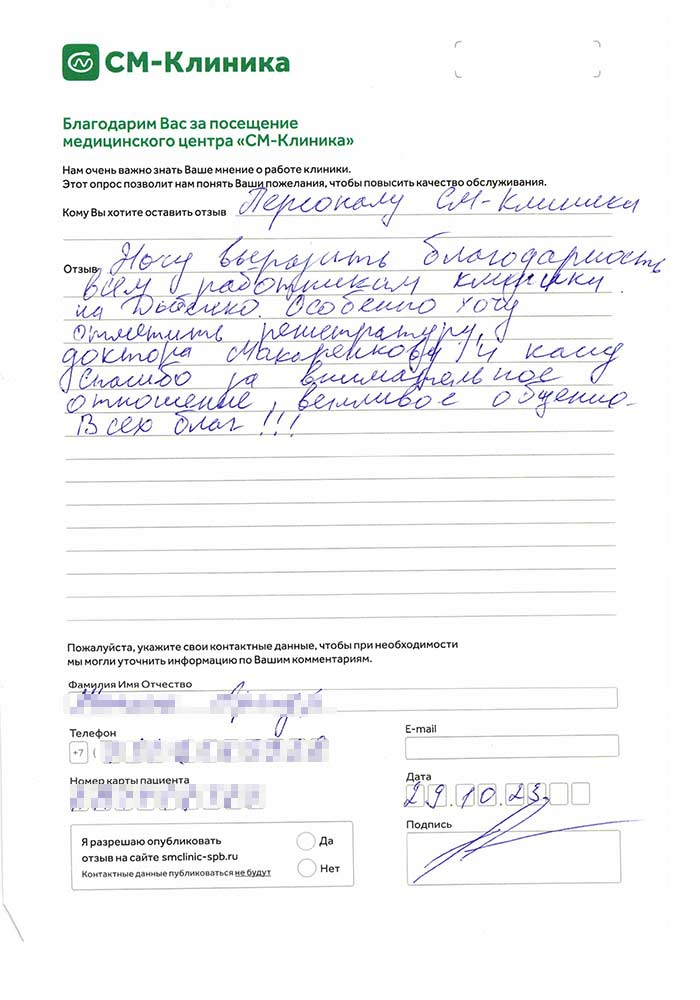 СМ-Клиника
Благодарим Вас за посещение
медицинского центра «СМ-Клиника»
Нам очень важно знать Ваше мнение о работе клиники.
Этот опрос позволит нам понять Ваши пожелания, чтобы повысить качество обслуживания.
Кому Вы хотите оставить отзыв Персоналу СМ-Клиника
Отзыв Хочу выразить благодарность
всем работникам клиники
на Дыбенко. Особенно хочу
отметить регистратуру,
доктора Макаренкову
Спасибо за внимательное
отношение, вежливое общение.
Всех благ!!!
Пожалуйста, укажите свои контактные данные, чтобы при необходимости
мы могли уточнить информацию по Вашим комментариям.
Фамилия Имя Отчество
Телефон
E-mail
+7 (
Номер карты пациента
Дата
29.10.23
Подпись
Я разрешаю опубликовать
отзыв на сайте smclinic-spb.ru
Контактные данные публиковаться не будут
Да
Нет